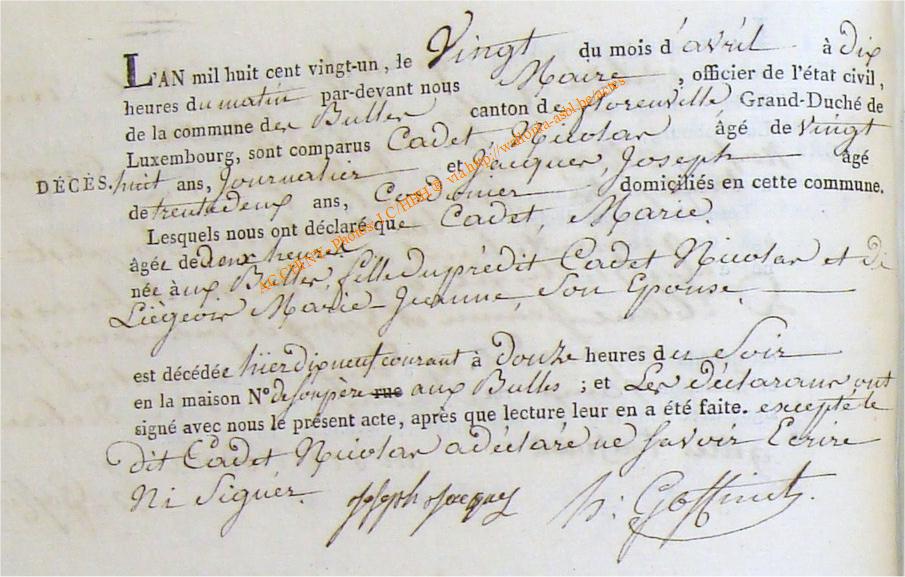 L'AN mil huit cent vingt-un, le Vingt du mois d'avril à dix
heures du matin par-devant nous Maire, officier de l'état civil,
de la commune des Bulles canton de florenville, Grand-Duché de
Luxembourg, sont comparus Cadet Nicolas âgé de vingt
DÉCÈS. huit ans, Journalier et Jacques, Joseph âgé
de trente deux ans, Cordonier domiciliés en cette commune.
Lesquels nous ont déclaré que Cadet, Marie.
âgée de deux heures
née aux Bulles, fille du prédit Cadet Nicolas et de
Liégeois Marie Jeanne, Son Epouse
est décédée hïer dix neuf courant à douze heures du Soir
en la maison N° de son père rue aux Bulles ; et Les déclarans ont
signé avec nous le présent acte, après que lecture leur en a été faite. excepté le
dit Cadet, Nicolas a déclaré ne savoir Ecrire
Ni Signer.
joseph jacques h: Goffinet.
ACCIENT Photos J.C/HBH @ via http://wallonia-asbl.be/actes